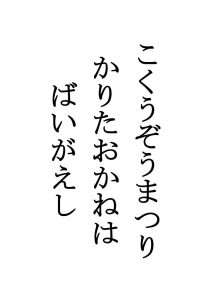 こくうぞうまつり
かりたおかねは
ばいがえし